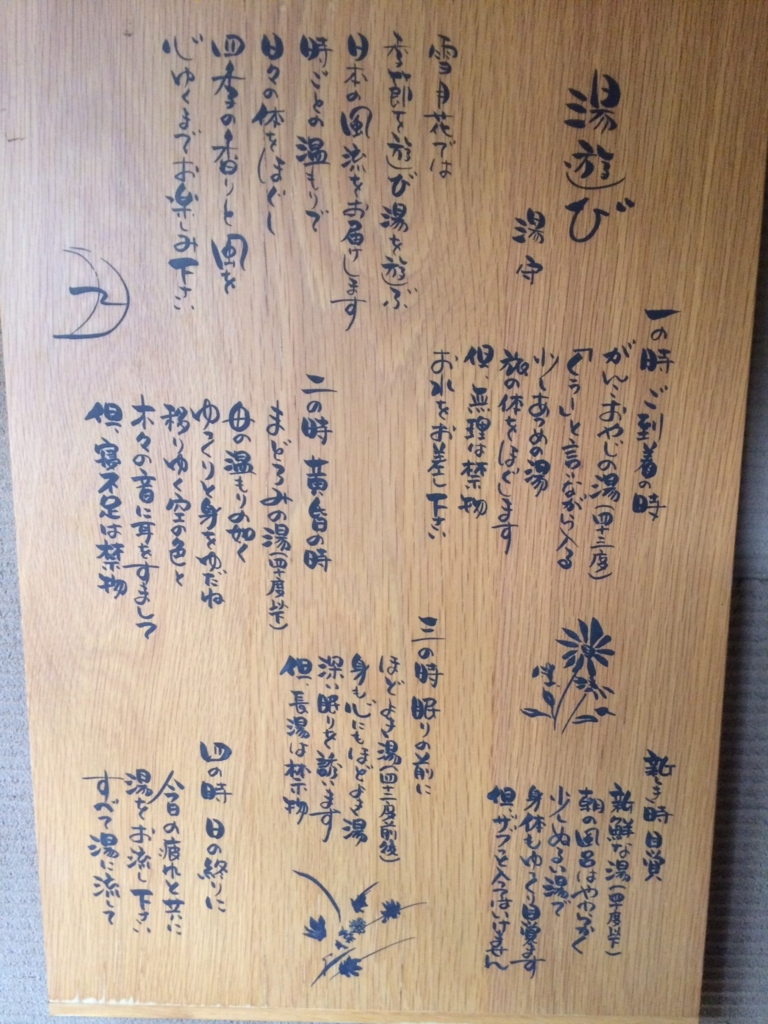 湯遊び
湯守
雪月花では
季節を遊び湯を遊ぶ
日本の風流をお届けします
時ごとの温もりで
日々の体をほぐし
四季の香りと風を
心ゆくまでお楽しみ下さい
一の時 ご到着の時
がんこおやじの湯(四十三度)
「くぅー」と言いながら入る
少しあつめの湯
旅の体をほぐします
但、無理は禁物
お水をお差し下さい
二の時 黄昏の時
まどろみの湯(四十度以下)
母の温もりの如く
ゆっくりと身をゆだね
移りゆく空の色と
木々の音に耳をすまして
但、寝不足は禁物
三の時 眠りの前に
ほどよき湯(四十二度前後)
身も心にもほどよき湯
深い眠りを誘います
但、長湯は禁物
四の時 日の終りに
今日の疲れと共に
湯をお流し下さい
すべて湯に流して
新き時 目覚
新鮮な湯(四十度以下)
朝の風呂はやわらかく
少しぬるい湯で
身体もゆっくり目覚ます
但、ザブンと入ってはいけません